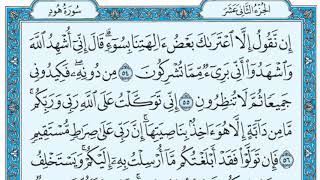 الجزء الثاني عشر
سورة هود
إِن نَّقُولُ إِلَّا ٱعْتَرَىٰكَ بَعْضُ ءَالِهَتِنَا بِسُوٓءٍ قَالَ إِنِّىٓ أُشْهِدُ ٱللَّهَ
وَٱشْهَدُوٓا۟ أَنِّى بَرِىٓءٌ مِّمَّا تُشْرِكُونَ ٥٤ مِن دُونِهِۦ فَكِيدُونِى
جَمِيعًا ثُمَّ لَا تُنظِرُونِ ٥٥ إِنِّى تَوَكَّلْتُ عَلَى ٱللَّهِ رَبِّى وَرَبِّكُم
مَّا مِن دَآبَّةٍ إِلَّا هُوَ ءَاخِذٌۢ بِنَاصِيَتِهَآ إِنَّ رَبِّى عَلَىٰ صِرَٰطٍ مُّسْتَقِيمٍ
٥٦ فَإِن تَوَلَّوْا۟ فَقَدْ أَبْلَغْتُكُم مَّآ أُرْسِلْتُ بِهِۦٓ إِلَيْكُمْ وَيَسْتَخْلِفُ